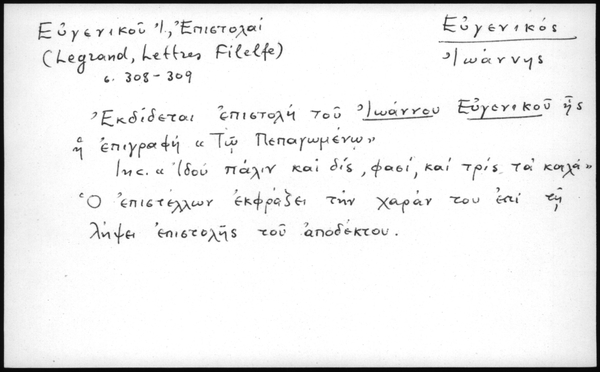 Εὐγενικοῦ Ἰ., Ἐπιστολαί
(Legrand, Lettres Filelfe)
σ. 308-309
Εὐγενικός
Ἰωάννης
Ἐκδίδεται ἐπιστολή τοῦ Ἰωάννου Εὐγενικοῦ ἧς
ἡ ἐπιγραφή «Τῷ Πεπαγωμένῳ»
Inc. «Ἰδού πάλιν καί δίς, φασί, καί τρίς τά καλά»
Ὁ ἐπιστέλλων ἐκφράζει τήν χαράν του ἐπί τῇ
λήψει ἐπιστολῆς τοῦ ἀποδέκτου.